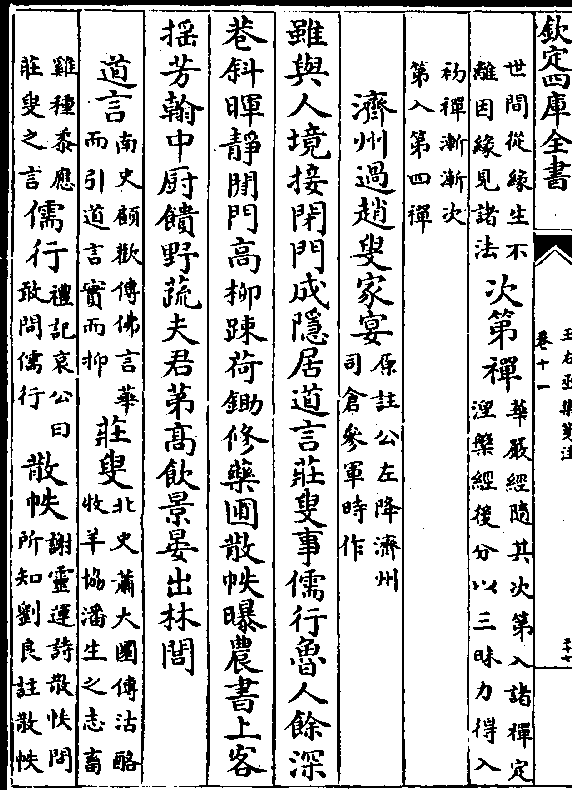 欽定四庫全書
世間從緣生不
離因緣見諸法
次第禪
華嚴經隨其次第入諸禪定
涅槃經後分以三昧力得入
初禪漸漸次
第入第四禪
濟州過趙叟家宴
原註公左降濟州
司倉參軍時作
雖與人境接閉門成隱居道言莊叟事儒行魯人餘深
巷斜暉靜閒門高柳疎荷鋤修藥圃散帙曝農書上客
揺芳翰中厨饋野蔬夫君第高飲景晏出林閭
道言
南史顧歡傳佛言華
而引道言實而抑
莊叟
北史蕭大圜傳沽酪
牧羊協潘生之志畜
雞種黍應
莊叟之言
儒行
禮記哀公曰
敢問儒行
散帙
謝靈運詩散帙問
所知劉良註散帙
卷十一